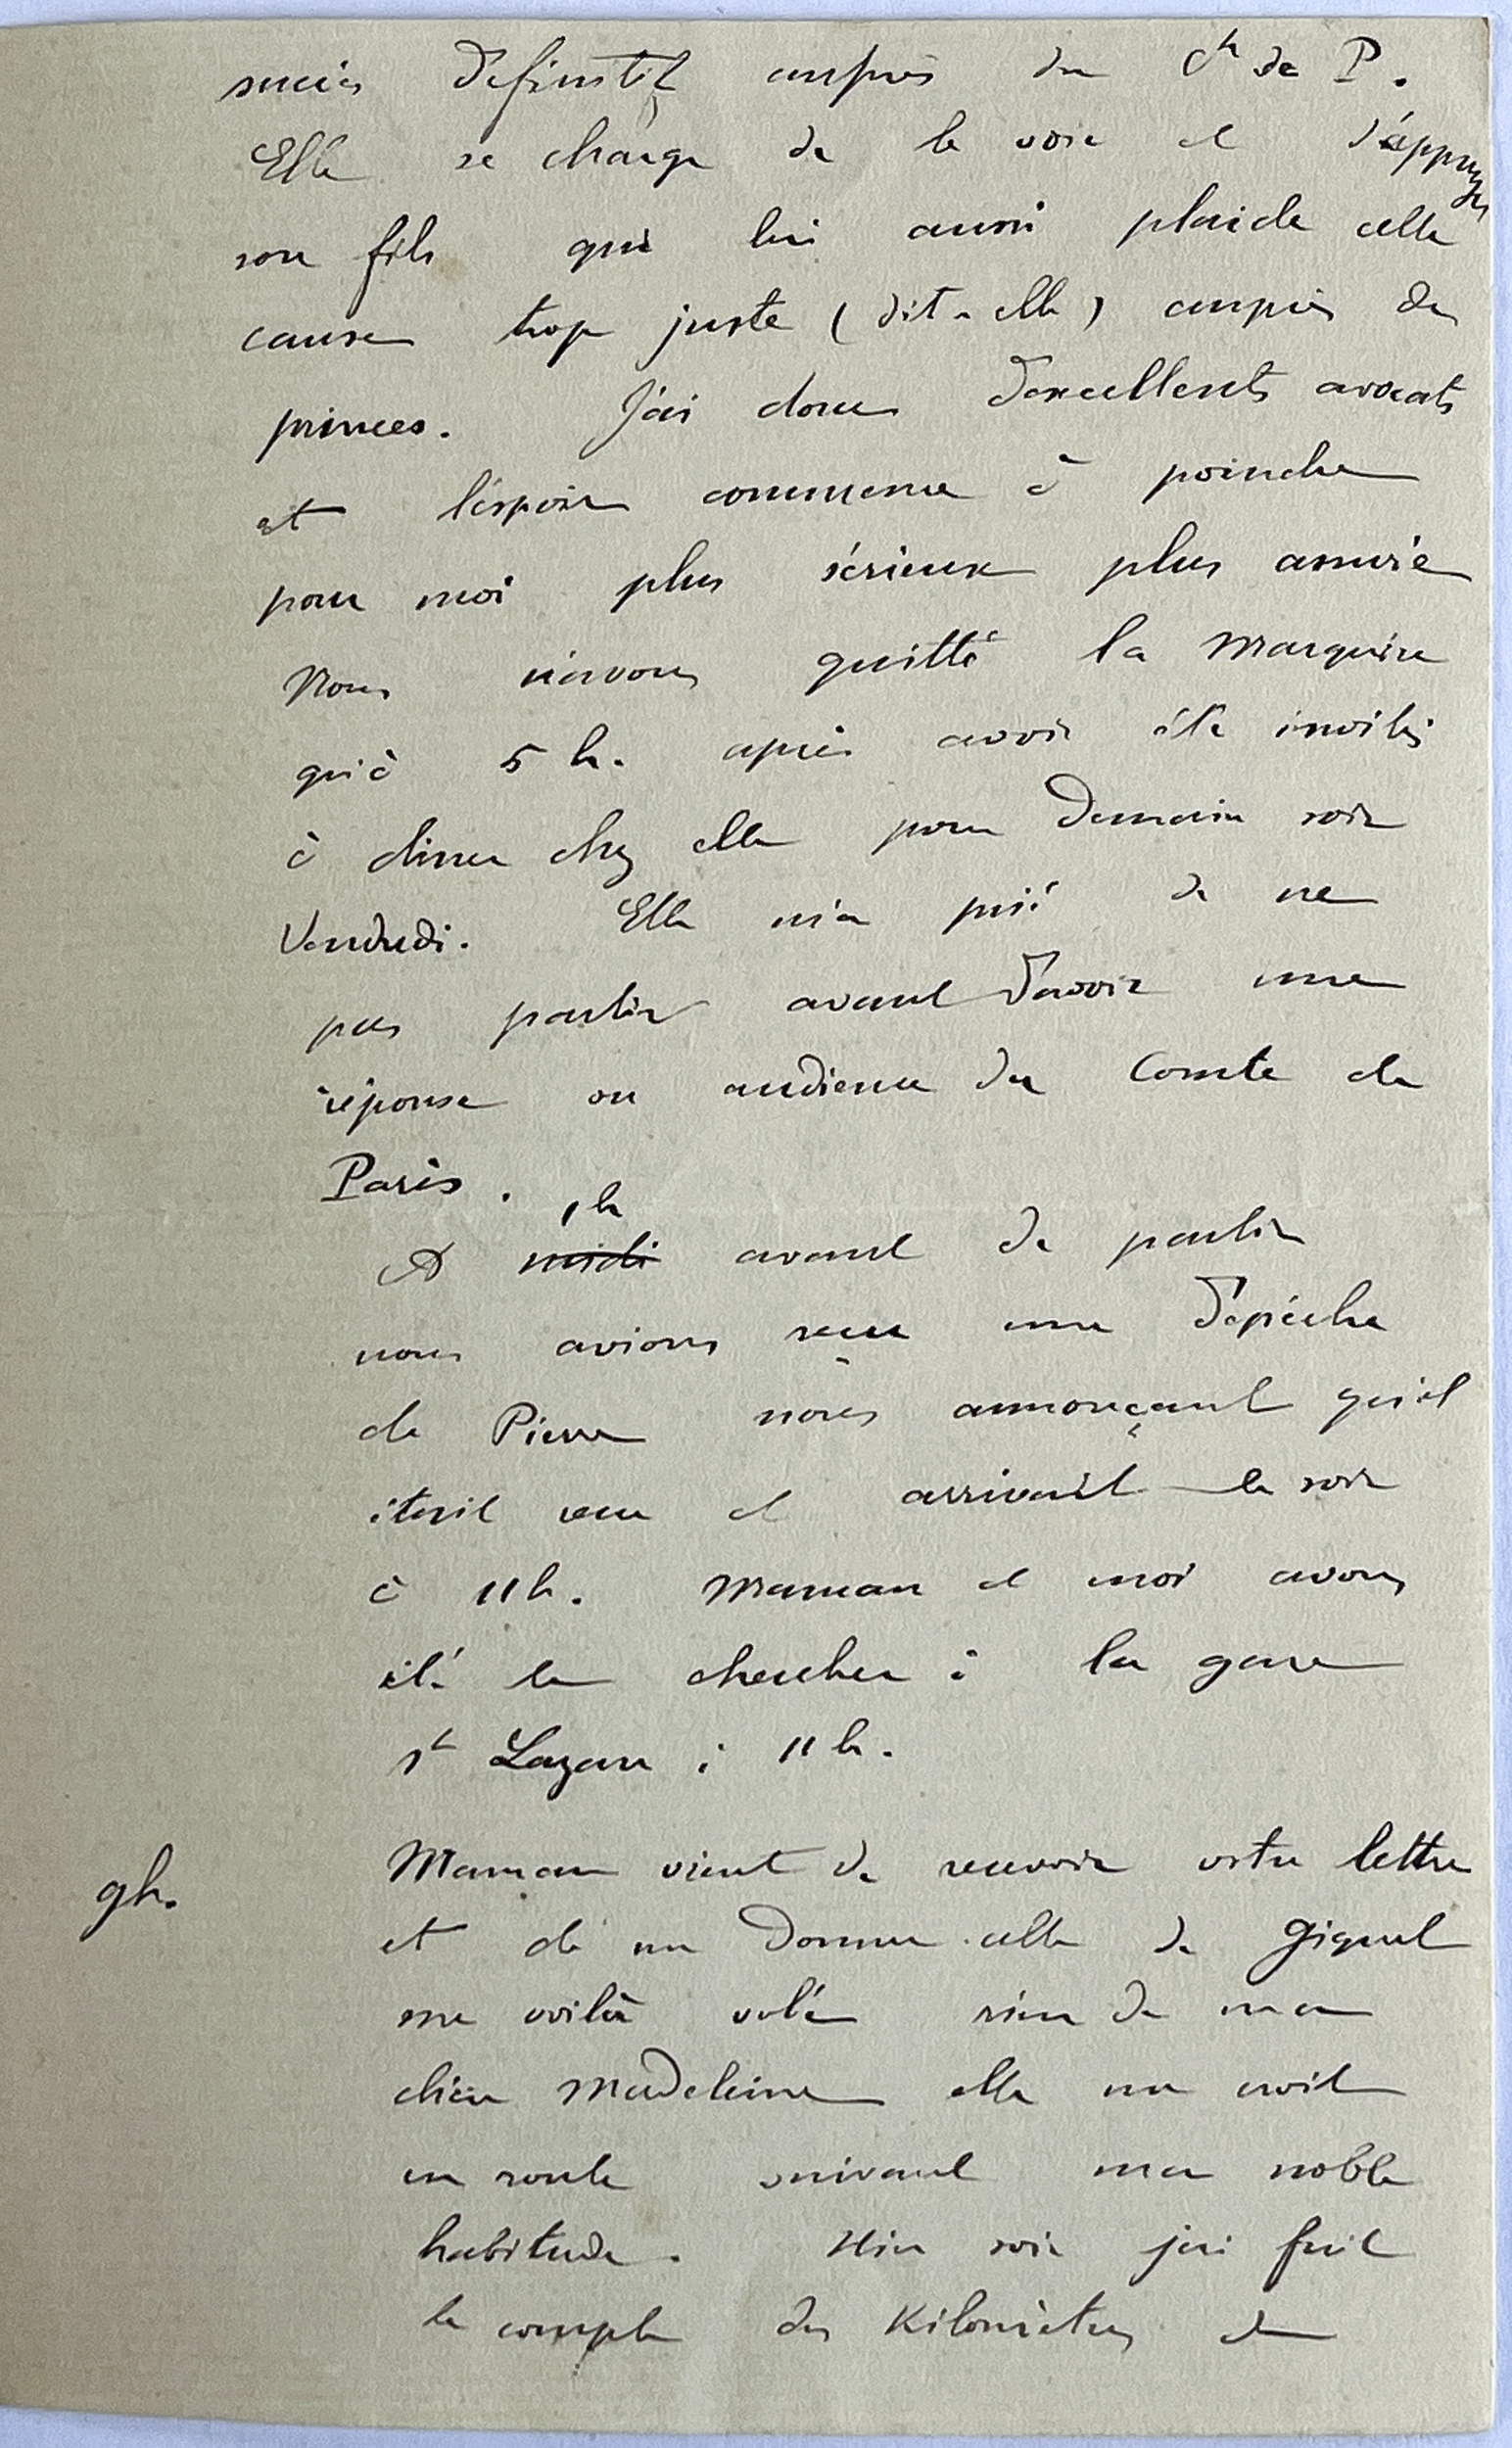 succès définitif auprès du Cte de P.
Elle se charge de le voir et
son fils qui lui aussi plaide cette
cause trop juste (dit-elle) auprès des
princes. J'ai donc d'excellents avocats
et l'espoir commence à poindre
pour moi plus sérieux plus assuré
Nous n'avons quitté la Marquise
qu'à 5 h. après avoir été invités
à diner chez elle pour demain soir
Vendredi. Elle m'a prié de ne
pas partir avant d'avoir une
réponse ou audience du Comte de
Paris.
1 h
A midi avant de partir
nous avions reçu une dépêche
de Pierre nous annonçant qu'il
était reçu et arrivait le soir
à 11 h. Maman et moi avons
été le chercher à la gare
St Lazare à 11 h.
9h. Maman vient de recevoir votre lettre
et de me donner celle de Giquel
me voilà volée rien de ma
chère Madeleine elle me croit
en route suivant ma noble
habitude. Hier soir j'ai fait
le compte des Kilomètres de